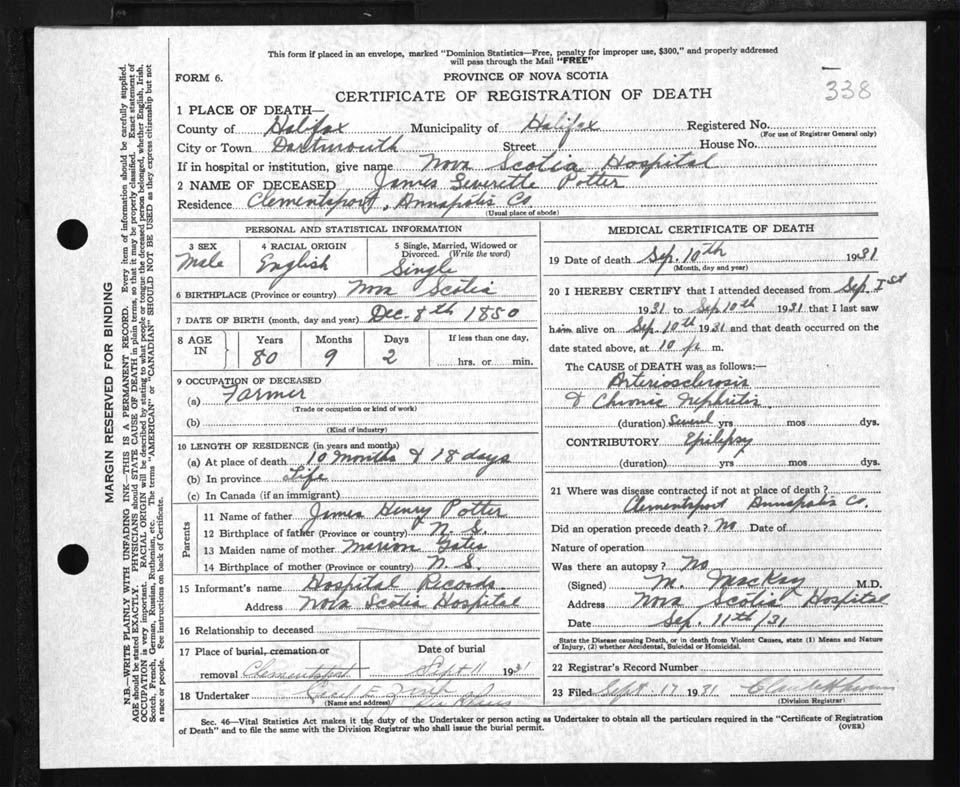 This form if placed in an envelope, marked "Dominion Statistics—Free, penalty for improper use, $300," and properly addressed
will pass through the Mail "FREE"
FORM 6.
PROVINCE OF NOVA SCOTIA
CERTIFICATE OF REGISTRATION OF DEATH
338
1 PLACE OF DEATH—
County of Halifax Municipality of Halifax Registered No.
(For use of Registrar General only)
City or Town Dartmouth Street House No.
If in hospital or institution, give name Nova Scotia Hospital
2 NAME OF DECEASED James Leverette Potter
Residence Clementsport, Annapolis Co.
(Usual place of abode)
PERSONAL AND STATISTICAL INFORMATION
3 SEX 4 RACIAL ORIGIN 5 Single, Married, Widowed or
Divorced. (Write the word)
Male English Single
6 BIRTHPLACE (Province or country) Nova Scotia
7 DATE OF BIRTH (month, day and year) Dec. 8th 1850
8 AGE IN Years Months Days If less than one day,
80 9 2 hrs. or min.
9 OCCUPATION OF DECEASED
(a) Farmer
(Trade or occupation or kind of work)
(b)
(Kind of industry)
10 LENGTH OF RESIDENCE (in years and months)
(a) At place of death 10 months & 18 days
(b) In province Life
(c) In Canada (if an immigrant)
Parents
11 Name of father James Henry Potter
12 Birthplace of father (Province or country) N. S.
13 Maiden name of mother Marion Gates
14 Birthplace of mother (Province or country) N. S.
15 Informant's name Hospital Records
Address Nova Scotia Hospital
16 Relationship to deceased
17 Place of burial, cremation or Date of burial
removal Clementsport Sept 11 1931
18 Undertaker
(Name and address)
MEDICAL CERTIFICATE OF DEATH
19 Date of death Sep. 10th 1931
(Month, day and year)
20 I HEREBY CERTIFY that I attended deceased from Sep. 1st
1931 to Sep 10th 1931 that I last saw
him alive on Sep. 10th 1931 and that death occurred on the
date stated above, at 10 p. m.
The CAUSE OF DEATH was as follows:—
Arteriosclerosis
& Chronic Nephritis
(duration) Several yrs mos dys.
CONTRIBUTORY Epilepsy
(duration) yrs mos dys.
21 Where was disease contracted if not at place of death?
Clementsport Annapolis Co.
Did an operation precede death? No Date of
Nature of operation
Was there an autopsy? No
(Signed) M. MacKay M.D.
Address Nova Scotia Hospital
Date Sep. 11th/31
State the Disease causing Death, or in death from Violent Causes, state (1) Means and Nature
of Injury, (2) whether Accidental, Suicidal or Homicidal.
22 Registrar's Record Number
23 Filed Sept. 17 1931
(Division Registrar)
Sec. 46—Vital Statistics Act makes it the duty of the Undertaker or person acting as Undertaker to obtain all the particulars required in the "Certificate of Registration
of Death" and to file the same with the Division Registrar who shall issue the burial permit.
(OVER)
MARGIN RESERVED FOR BINDING
N.B.—WRITE PLAINLY WITH UNFADING INK—THIS IS A PERMANENT RECORD. Every item of information should be carefully supplied.
AGE should be stated EXACTLY. PHYSICIANS should STATE CAUSE OF DEATH in plain terms, so that it may be properly classified. Exact statement of
OCCUPATION is very important. RACIAL ORIGIN will be described by stating to what people or tongue the deceased person belonged, whether English, Irish,
Scotch, French, German, Russian, Ruthenian, etc. The terms "AMERICAN" or "CANADIAN" SHOULD NOT BE USED as they express citizenship but not
a race or people. See instructions on back of Certificate.